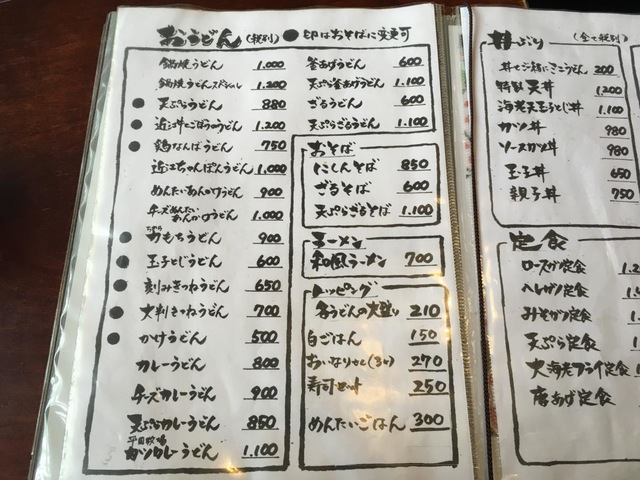 おうどん (税別) ● 印はおそばに変更可
鍋焼うどん 1.000
鍋焼うどんスペシャル 1.200
● 天ぷらうどん 880
● 近江牛ごぼううどん 1.200
● 鶏なんばうどん 750
近江ちゃんぽんうどん 1.000
めんたいあんかけうどん 900
チーズめんたいあんかけうどん 1.000
● 力もちうどん 900
● 玉子とじうどん 600
● 刻みきつねうどん 650
● 大判きつねうどん 700
● かけうどん 500
カレーうどん 800
チーズカレーうどん 900
天ぷらカレーうどん 850
平田牧場
カツカレーうどん 1.100
釜あげうどん 600
天ぷら釜あげうどん 1.100
ざるうどん 600
天ぷらざるうどん 1.100
おそば
にしんそば 850
ざるそば 600
天ぷらざるそば 1.100
ラーメン
和風ラーメン 700
トッピング
各うどんの大盛り 210
白ごはん 150
おいなりさん(3ヶ) 270
寿司セット 250
めんたいごはん 300
丼ぶり (全て税別)
丼とご一緒にミニうどん 200
特製天丼 1.200
海老天玉子とじ丼 1.100
カツ丼 980
ソースカツ丼 980
玉子丼 650
親子丼 750
定食
ロースカツ定食
ヘレカツ定食
みそカツ定食
天ぷら定食
大海老フライ定食
唐あげ定食